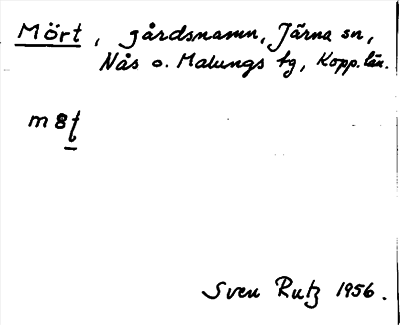 Mört, gårdsnamn, Järna sn,
Nås o. Malungs tg, Kopp. län.
m8t
Sven Rutz 1956.